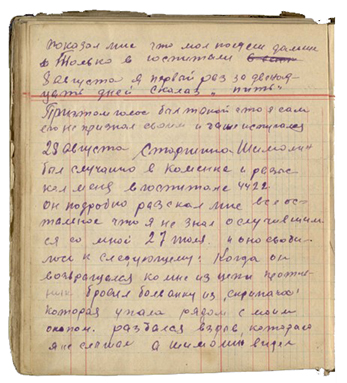 показал мне что мол поедем дальше
Только в госпитали
3 августа я первый раз за двенад-
цать дней сказал „пить“
Притом голос был такой что я сам
его не признал своим и даже испугался
23 августа Старшина Шимолин
был случайно в Каменке и разыс-
кал меня в госпитале 4422
он подробно расскал мне все ос-
тальное что я не знал о случившим
ся со мной 27 июля и оно своди-
лось к следующему: Когда он
возвращался ко мне из цепи против-
ник бросил болванку из скрипача!
которая упала рядом с моим
окопом. раздался взрыв которого
я не слышал а Шимолин видел